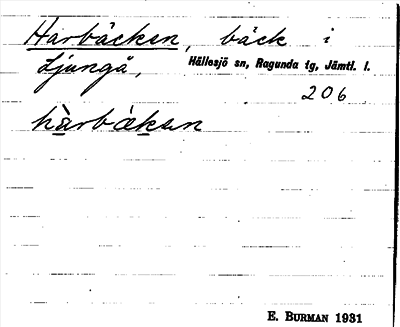 Harbäcken, bäck i
Ljungå, Hällesjö sn, Ragunda tg, Jämtl. l.
206
hàrbäkan
E. BURMAN 1931